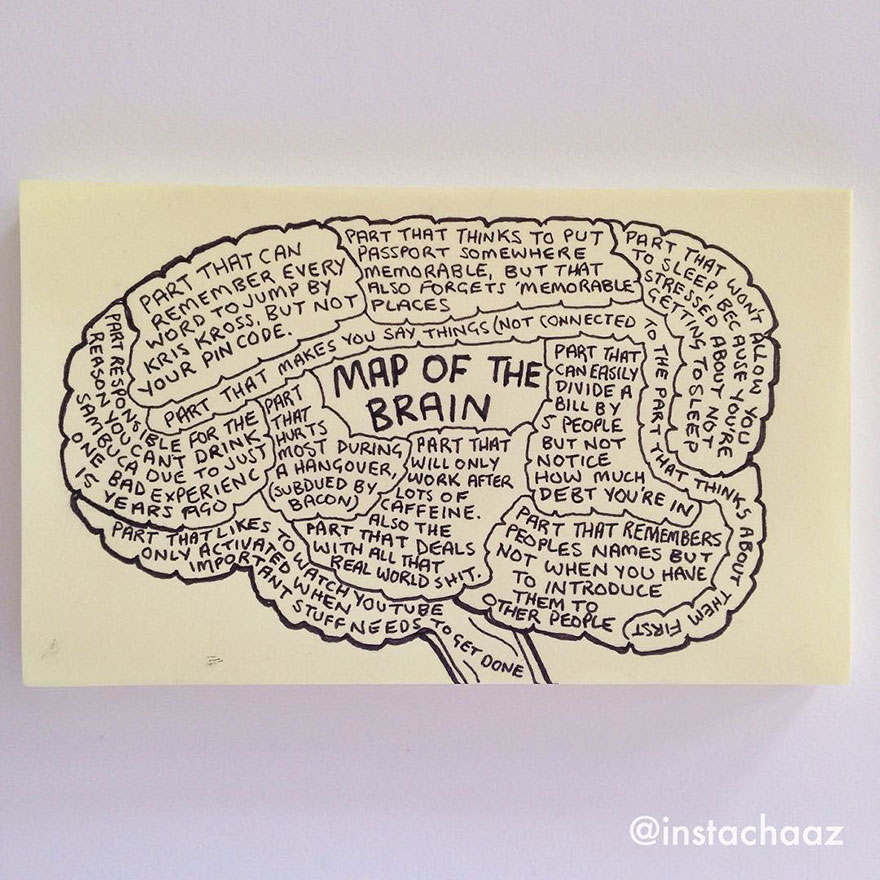 MAP OF THE
BRAIN
PART THAT CAN
REMEMBER EVERY
WORD TO JUMP BY
KRIS KROSS, BUT NOT
YOUR PIN CODE.
PART THAT THINKS TO PUT
PASSPORT SOMEWHERE
MEMORABLE, BUT THAT
ALSO FORGETS 'MEMORABLE'
PLACES
PART THAT WON'T ALLOW YOU
TO SLEEP, BECAUSE YOU'RE
STRESSED ABOUT NOT
GETTING TO SLEEP
PART RESPONSIBLE FOR THE
REASON YOU CAN'T DRINK
SAMBUCA DUE TO JUST
ONE BAD EXPERIENC
15 YEARS AGO
PART THAT MAKES YOU SAY THINGS (NOT CONNECTED TO THE PART THAT THINKS ABOUT THEM FIRST
PART
THAT
HURTS
MOST DURING
A HANGOVER,
(SUBDUED BY
BACON)
PART THAT
WILL ONLY
WORK AFTER
LOTS OF
CAFFEINE.
ALSO THE
PART THAT DEALS
WITH ALL THAT
REAL WORLD SHIT.
PART THAT
CAN EASILY
DIVIDE A
BILL BY
5 PEOPLE
BUT NOT
NOTICE
HOW MUCH
DEBT YOU'RE IN
PART THAT REMEMBERS
PEOPLES NAMES BUT
NOT WHEN YOU HAVE
TO INTRODUCE
THEM TO
OTHER PEOPLE
PART THAT LIKES TO WATCH YOUTUBE
ONLY ACTIVATED WHEN
IMPORTANT STUFF NEEDS TO GET DONE
@instachaaz